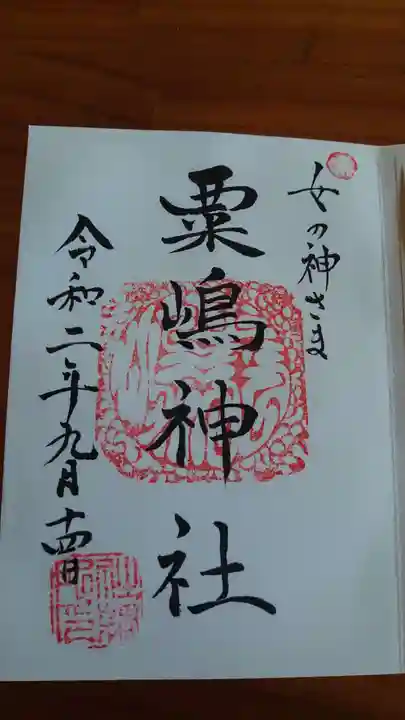 女の神さま
粟嶋神社
令和二年九月十四日